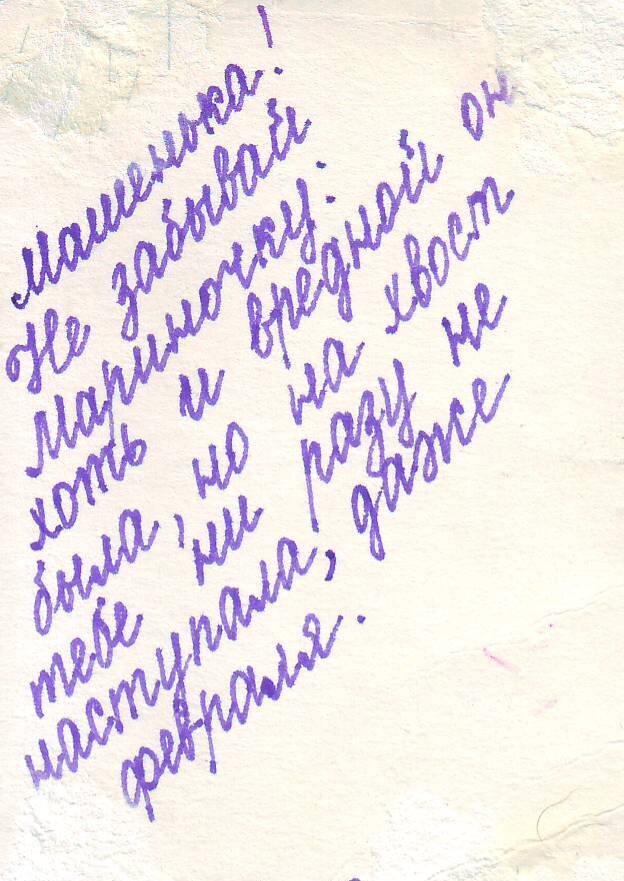 Машенька!
Не забывай
Мариночку.
хоть и вредной он
была, но на хвост
тебе ни разу не
наступала, даже
февраля.